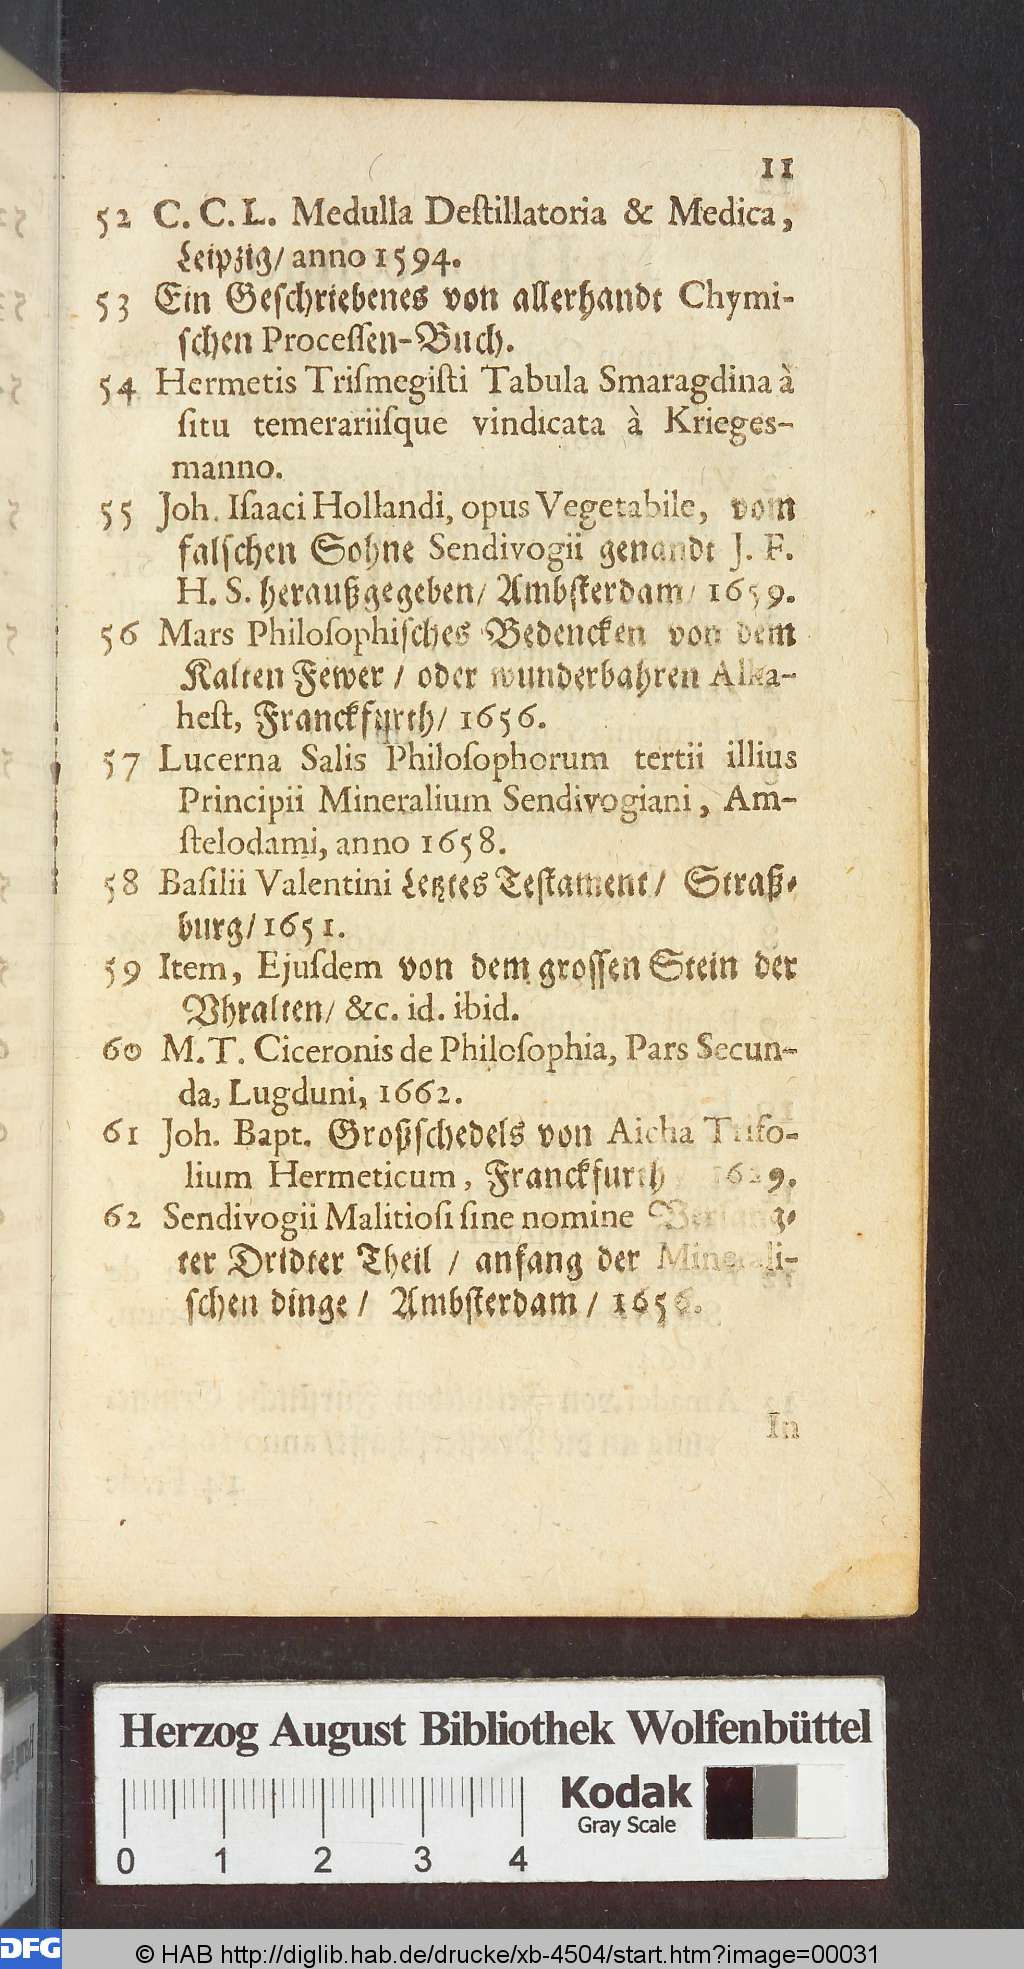 11
52 C. C. L. Medulla Deſtillatoria & Medica,
Leipzig/ anno 1594.
53 Ein Geſchriebenes von allerhandt Chymi-
ſchen Proceſſen-Buch.
54 Hermetis Triſmegiſti Tabula Smaragdina à
ſitu temerariiſque vindicata à Krieges-
manno.
55 Joh. Iſaaci Hollandi, opus Vegetabile, vom
falſchen Sohne Sendivogii genandt J. F.
H. S. heraußgegeben/ Ambſterdam/ 1659.
56 Mars Philoſophiſches Bedencken von dem
Kalten Fewer / oder wunderbahren Alka-
heſt, Franckfurth/ 1656.
57 Lucerna Salis Philoſophorum tertii illius
Principii Mineralium Sendivogiani, Am-
ſtelodami, anno 1658.
58 Baſilii Valentini Letztes Teſtament/ Straß-
burg/ 1651.
59 Item, Ejuſdem von dem groſſen Stein der
Vhralten/ &c. id. ibid.
60 M. T. Ciceronis de Philoſophia, Pars Secun-
da, Lugduni, 1662.
61 Joh. Bapt. Großſchedels von Aicha Trifo-
lium Hermeticum, Franckfurth 1629.
62 Sendivogii Malitioſi ſine nomine Verlang-
ter Dridter Theil / anfang der Minerali-
ſchen dinge / Ambſterdam / 1656.
In
Herzog August Bibliothek Wolfenbüttel
Kodak
Gray Scale
0 1 2 3 4
DFG © HAB http://diglib.hab.de/drucke/xb-4504/start.htm?image=00031